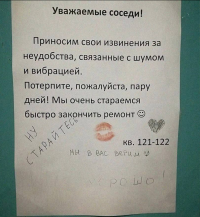 Уважаемые соседи!
Приносим свои извинения за
неудобства, связанные с шумом
и вибрацией.
Потерпите, пожалуйста, пару
дней! Мы очень стараемся
быстро закончить ремонт ☺
кв. 121-122
НУ
СТАРАЙТЕСЬ
МЫ В ВАС ВЕРИМ